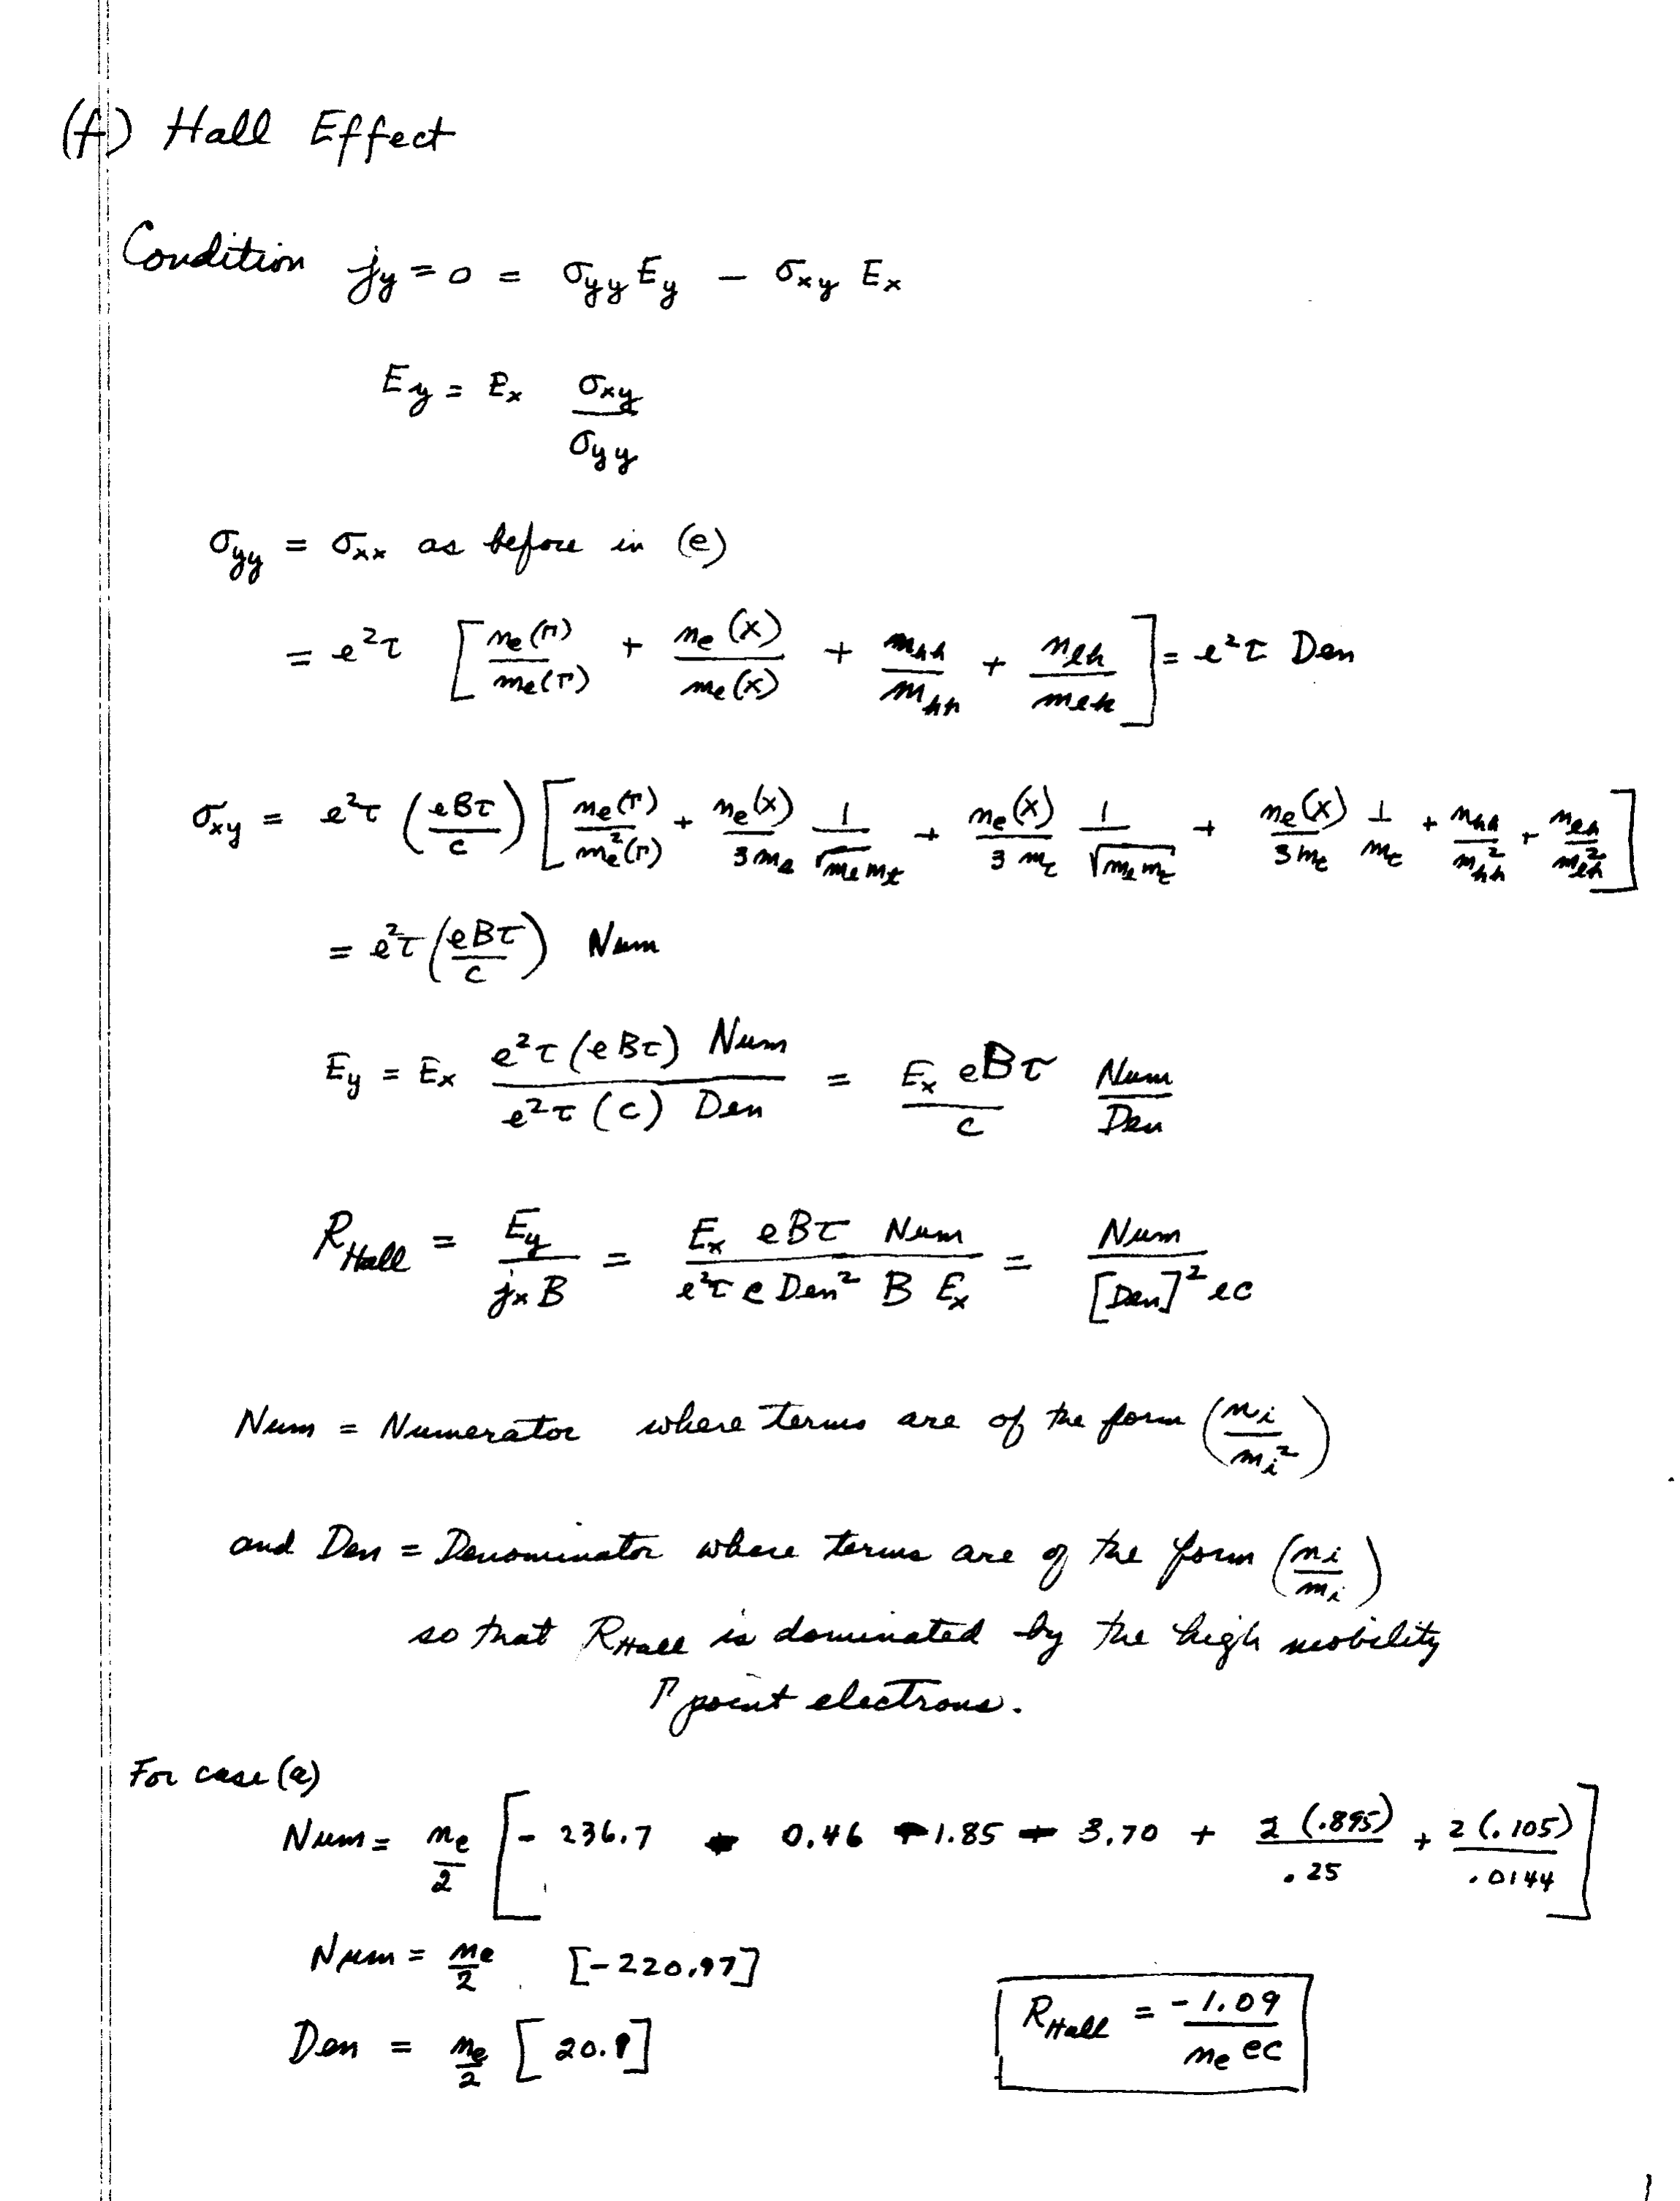 (f) Hall Effect
Condition j_y = 0 = σ_yy E_y − σ_xy E_x
E_y = E_x σ_xy / σ_yy
σ_yy = σ_xx as before in (e)
= e²τ [ n_e(Γ)/m_e(Γ) + n_e(X)/m_e(X) + n_hh/m_hh + n_lh/m_lh ] = e²τ Den
σ_xy = e²τ (eBτ/c) [ n_e(Γ)/m_e²(Γ) + n_e(X)/3m_l 1/√(m_l m_t) + n_e(X)/3m_t 1/√(m_l m_t) + n_e(X)/3m_t 1/m_t + n_hh/m_hh² + n_lh/m_lh² ]
= e²τ (eBτ/c) Num
E_y = E_x e²τ (eBτ) Num / e²τ (c) Den = E_x eBτ / c Num / Den
R_Hall = E_y / j_x B = E_x eBτ Num / e²τ c Den² B E_x = Num / [Den]² ec
Num = Numerator where terms are of the form (n_i / m_i²)
and Den = Denominator where terms are of the form (n_i / m_i)
so that R_Hall is dominated by the high mobility
Γ point electrons.
For case (a)
Num = n_e/2 [ − 236.7 − 0.46 − 1.85 − 3.70 + 2 (.895) / .25 + 2 (.105) / .0144 ]
Num = n_e/2 [−220.97]
Den = n_e/2 [20.1]
R_Hall = −1.09 / n_e ec